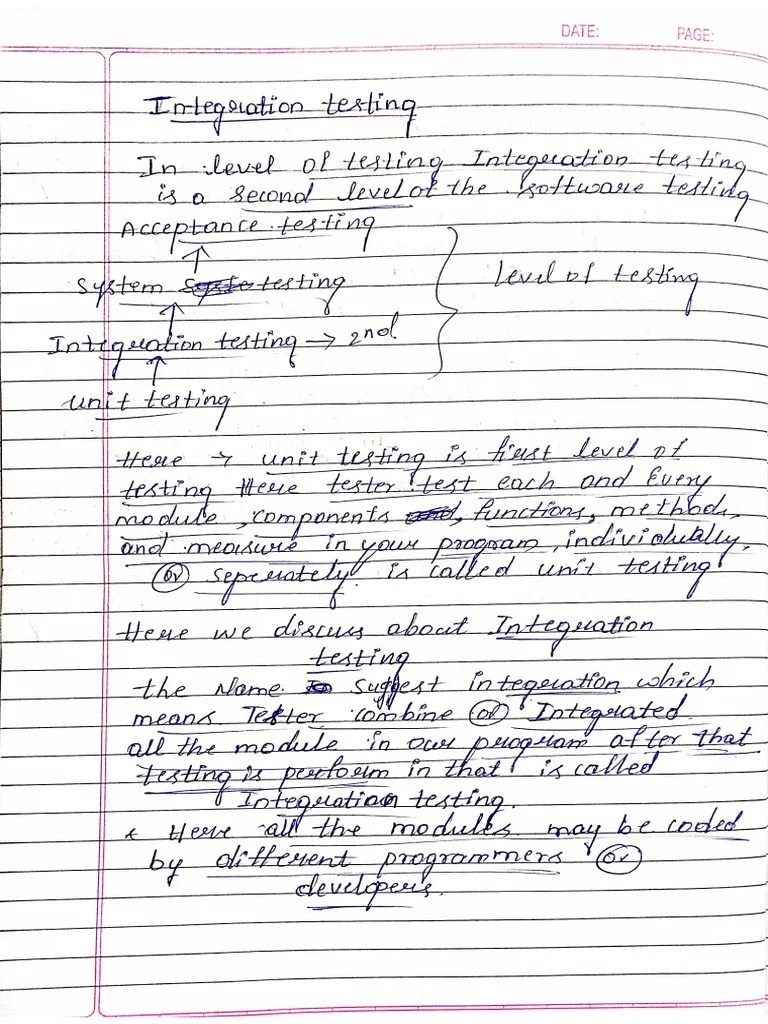 DATE: PAGE:
Integration testing
In level of testing Integration testing
is a second level of the software testing
Acceptance testing
↑
System testing
↑
Integration testing → 2nd
↑
unit testing
level of testing
Here → unit testing is first level of
testing Here tester test each and Every
module, components, functions, methods,
and measure in your program, individually,
or seperately is called unit testing
Here we discuss about Integration
testing
the Name Suggest integration which
means Tester combine or Integrated
all the module in our program after that
testing is perform in that is called
Integration testing.
* Here all the modules may be coded
by different programmers or
developers.